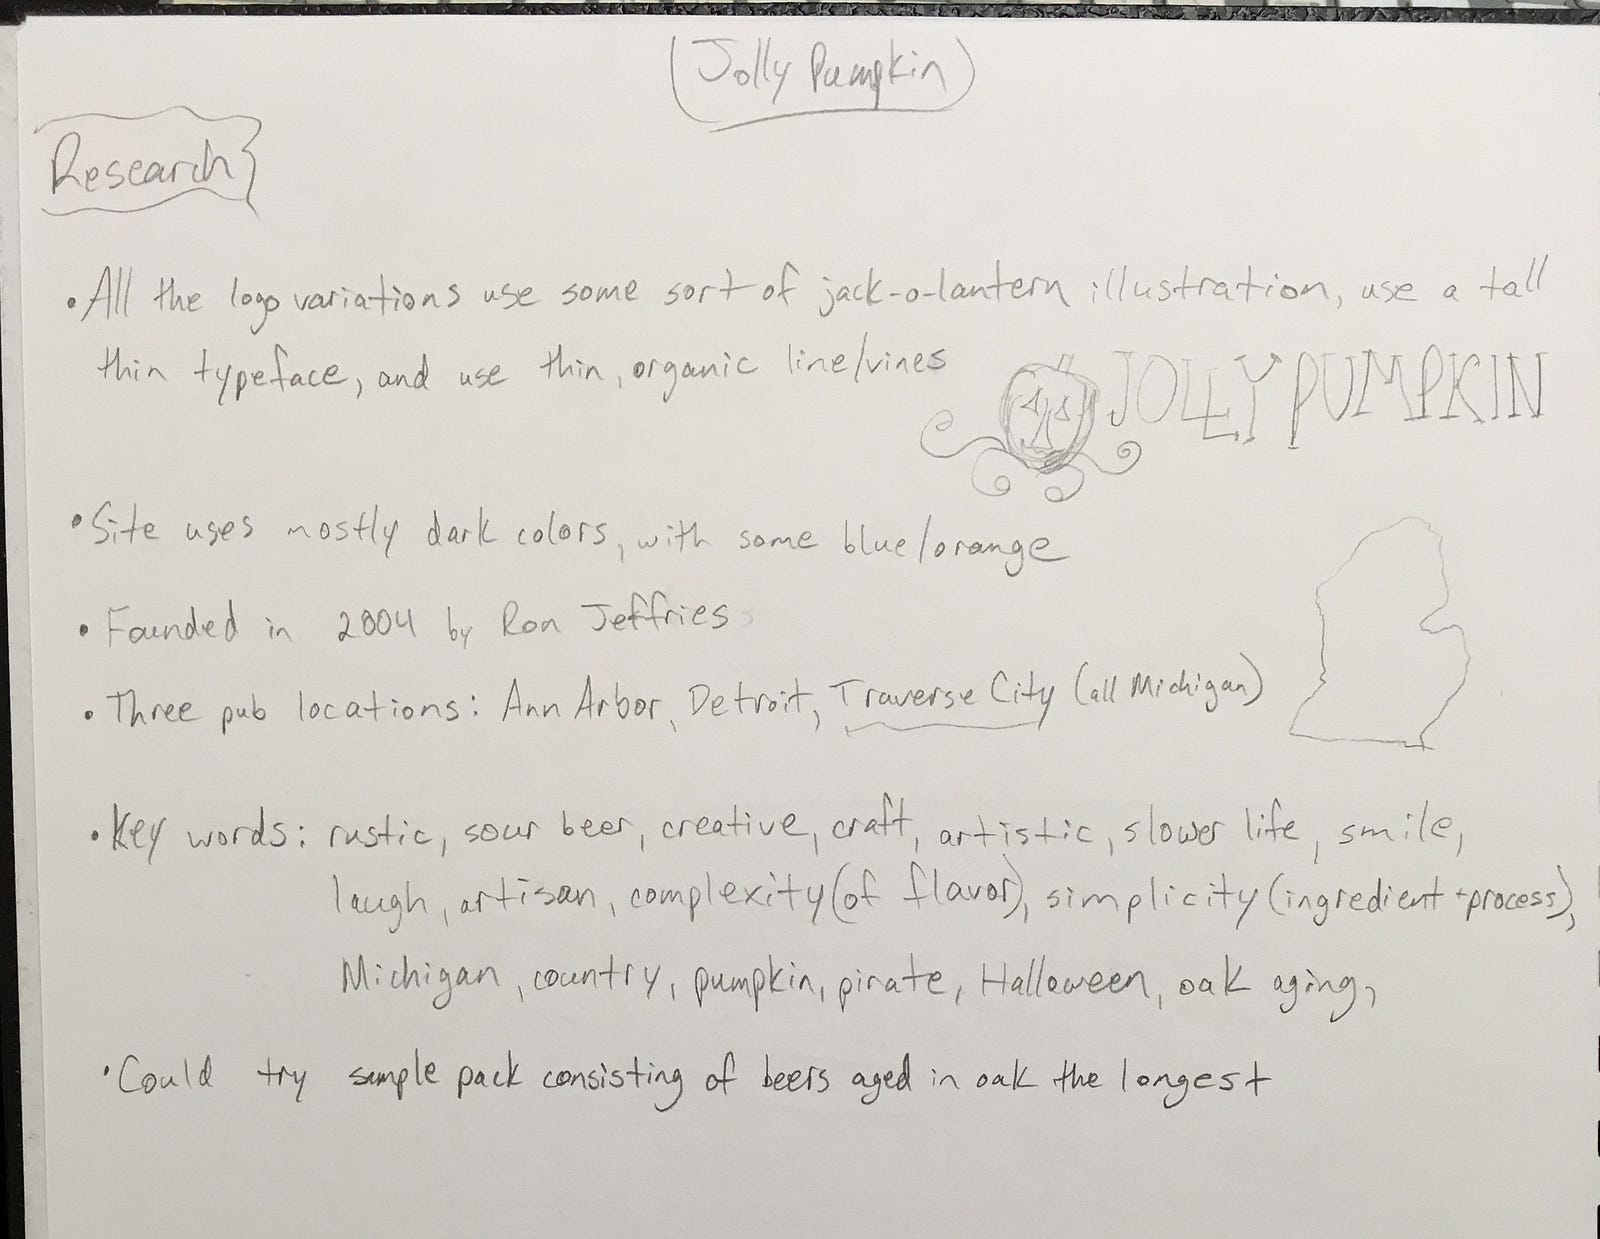 Jolly Pumpkin
Research
• All the logo variations use some sort of jack-o-lantern illustration, use a tall
thin typeface, and use thin, organic line/vines
JOLLY PUMPKIN
• Site uses mostly dark colors, with some blue/orange
• Founded in 2004 by Ron Jeffries
• Three pub locations: Ann Arbor, Detroit, Traverse City (all Michigan)
• Key words: rustic, sour beer, creative, craft, artistic, slower life, smile,
laugh, artisan, complexity (of flavor), simplicity (ingredient + process),
Michigan, country, pumpkin, pirate, Halloween, oak aging,
• Could try sample pack consisting of beers aged in oak the longest